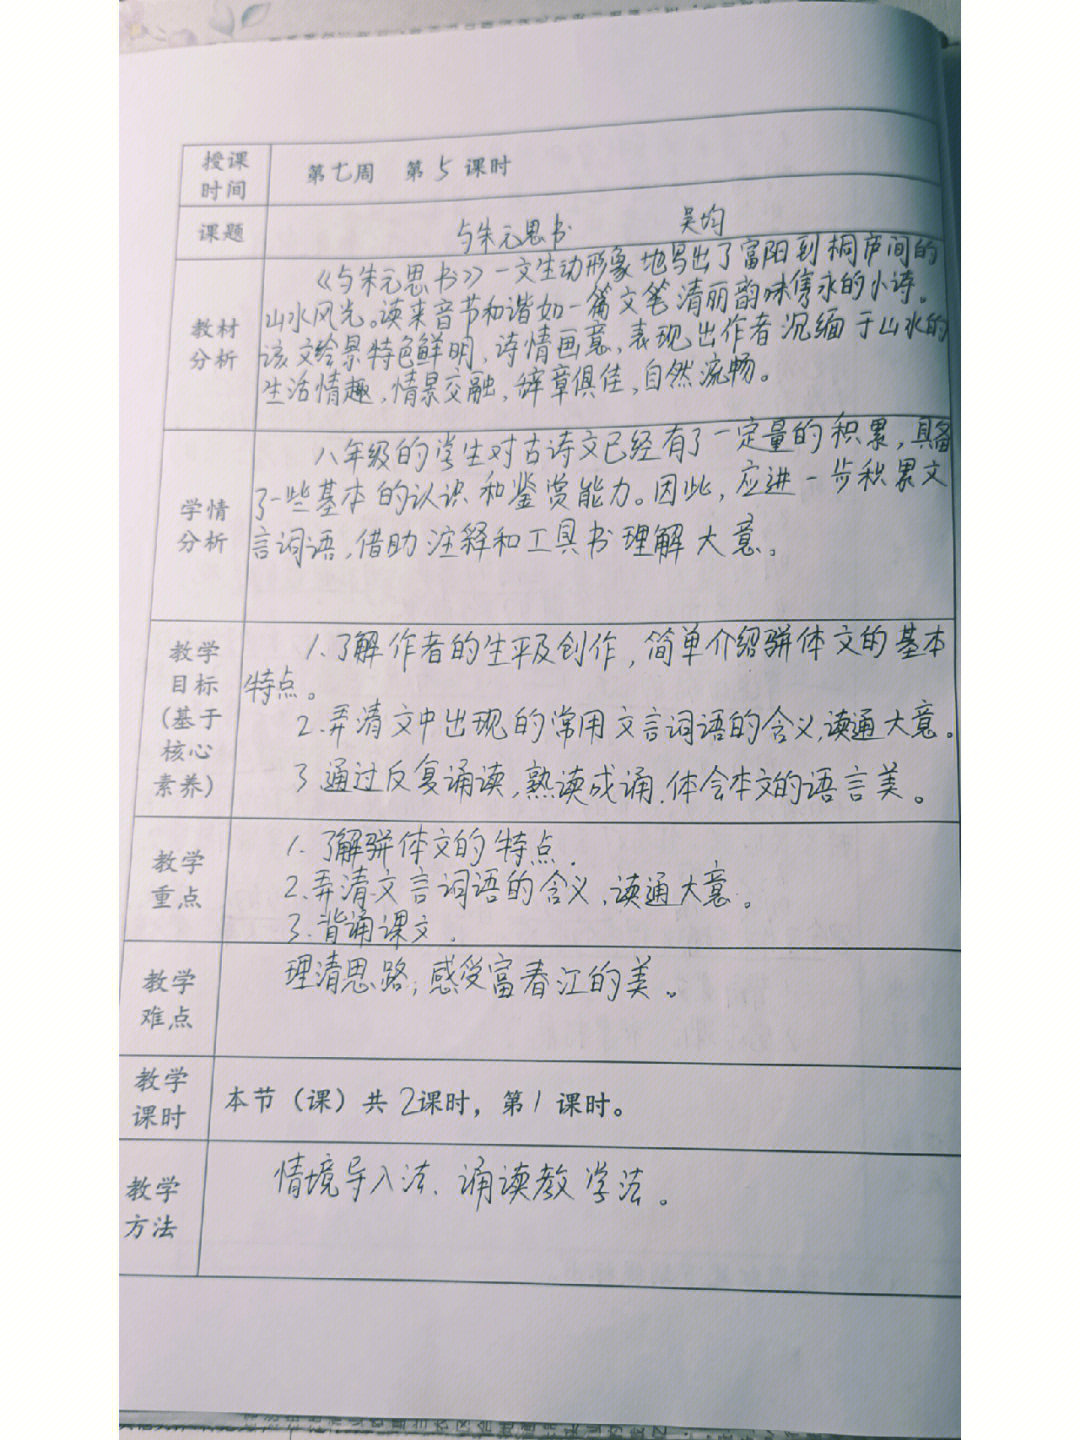 授课
时间
第七周 第5课时
课题
与朱元思书 吴均
教材
分析
《与朱元思书》一文生动形象地写出了富阳到桐庐间的
山水风光。读来音节和谐如一篇文笔清丽韵味隽永的小诗。
该文绘景特色鲜明,诗情画意,表现出作者沉缅于山水的
生活情趣,情景交融,辞章俱佳,自然流畅。
学情
分析
八年级的学生对古诗文已经有了一定量的积累,具备
了一些基本的认识和鉴赏能力。因此,应进一步积累文
言词语,借助注释和工具书理解大意。
教学
目标
(基于
核心
素养)
1.了解作者的生平及创作,简单介绍骈体文的基本
特点。
2.弄清文中出现的常用文言词语的含义,读通大意。
3.通过反复诵读,熟读成诵,体会本文的语言美。
教学
重点
1.了解骈体文的特点.
2.弄清文言词语的含义,读通大意。
3.背诵课文.
教学
难点
理清思路,感受富春江的美。
教学
课时
本节(课)共2课时,第1课时。
教学
方法
情境导入法、诵读教学法。